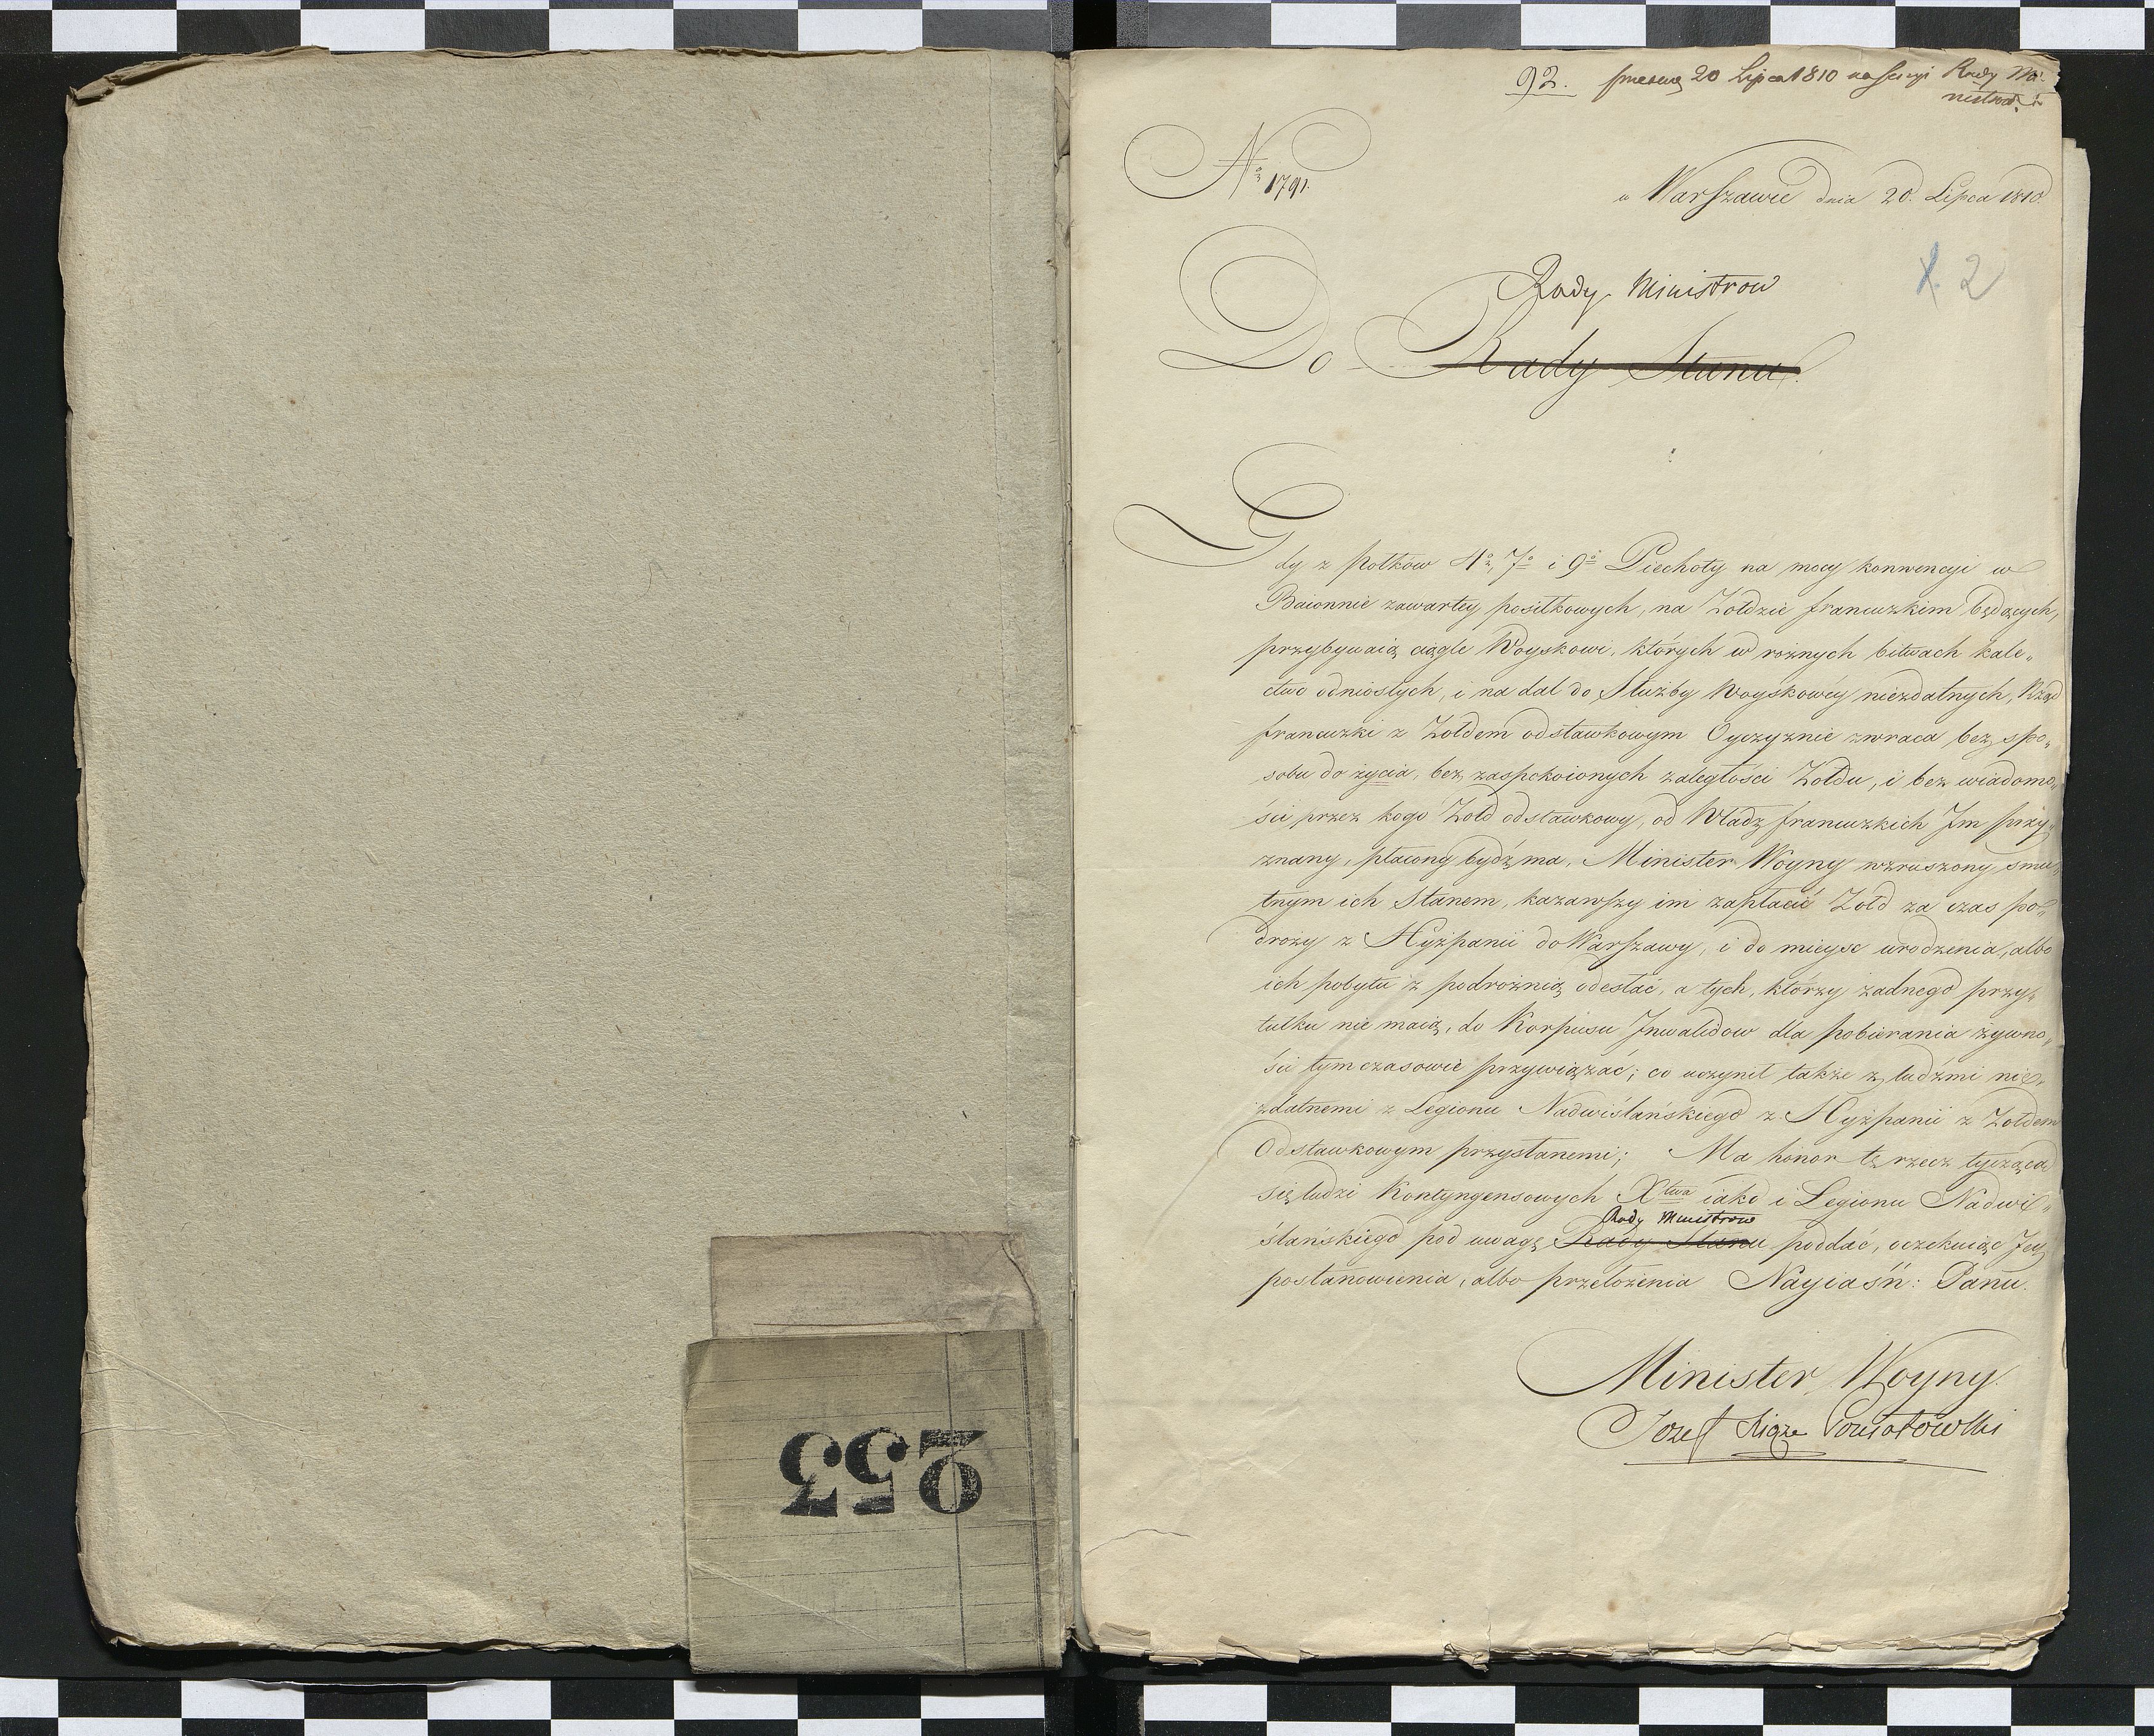 253
92. 20 Lipca 1810 na Sessyi Rady Mi:
nistrów
No 1791.
w Warszawie dnia 20. Lipca 1810
X. 2
Rady Ministrow
Do Rady Stanu.
Gdy z połkow 4o, 7o i 9o Piechoty na mocy konwencyi w
Baionnie zawartey posiłkowych, na Żołdzie francuzkim będących,
przybywaią ciągle Woyskowi, których w rożnych bitwach kale„
ctwo odniosłych, i na dal do Służby Woyskowey niezdatnych, Rząd
francuzki z Żołdem odstawkowym Oyczyznie zwraca bez spo„
sobu do życia, bez zaspokoionych zaległości Żołdu, i bez wiadomo„
ści przez kogo Żołd odstawkowy, od Władz francuzkich Jm przy„
znany, płacony bydź ma, Minister Woyny wzruszony smu„
tnym ich Stanem, kazawszy im zapłacić Żołd za czas po„
droży z Hyżpanii do Warszawy, i do mieysc urodzenia, albo
ich pobytu z podrożnią odesłać, a tych, którzy żadnego przy„
tułku nie maią, do Korpusu Jnwalidow dla pobierania żywno„
ści tymczasowie przywiązać; co uczynił także z ludźmi nie„
zdatnemi z Legionu Nadwiślańskiego z Hyżpanii z Żołdem
Odstawkowym przysłanemi; Ma honor tę rzecz tyczącą
się ludzi Kontyngensowych Xtwa iako i Legionu Nadwi„
Rady Ministrow
ślańskiego pod uwagę Rady Stanu poddać, oczekuiąc Jey
postanowienia, albo przełożenia Nayiaśń: Panu.
Minister Woyny.
Jozef Xiąże Poniatowski